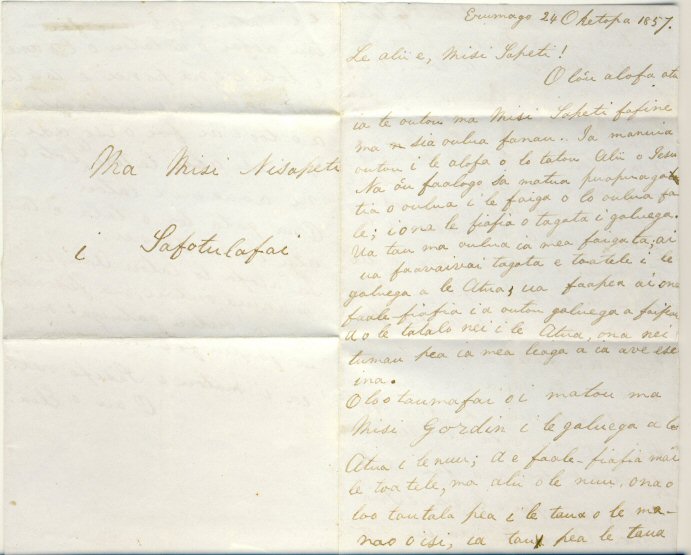 Ma Misi Nisapeti
i Safotulafai
Erumago 24 Oketopa 1857.
Le alii e, Misi Sapeti!
O lóu alofa atu
ia te outou ma Misi Sapeti fafine
ma sia oulua fanau. Ia manuia
outou i le alofa o lo tatou Alii o Iesu
Na óu faalogo sa matua puapuaga
tia o oulua i le faiga o lo oulua fa
le; i ona le fiafia o tagata i galuega.
Ua tau ma oulua ia mea faigata; ai
ua faavaivai tagata e toatele i le
galuega a le Atua, ua faapea ai ona
faale-fiafia i a outou galuega a
a o le tatalo nei i le Atua, ona nei
tumau pea ia mea leaga a ia ave ese
ina.
O loo taumafai o i matou ma
Misi Gordin i le galuega a le
Atua i le nuu; a e faale-fiafia mai
le toatele, ma alii o le nuu, ona o
loo tautala pea i le taua o le ma-
nao o isi; ia tau pea le taua